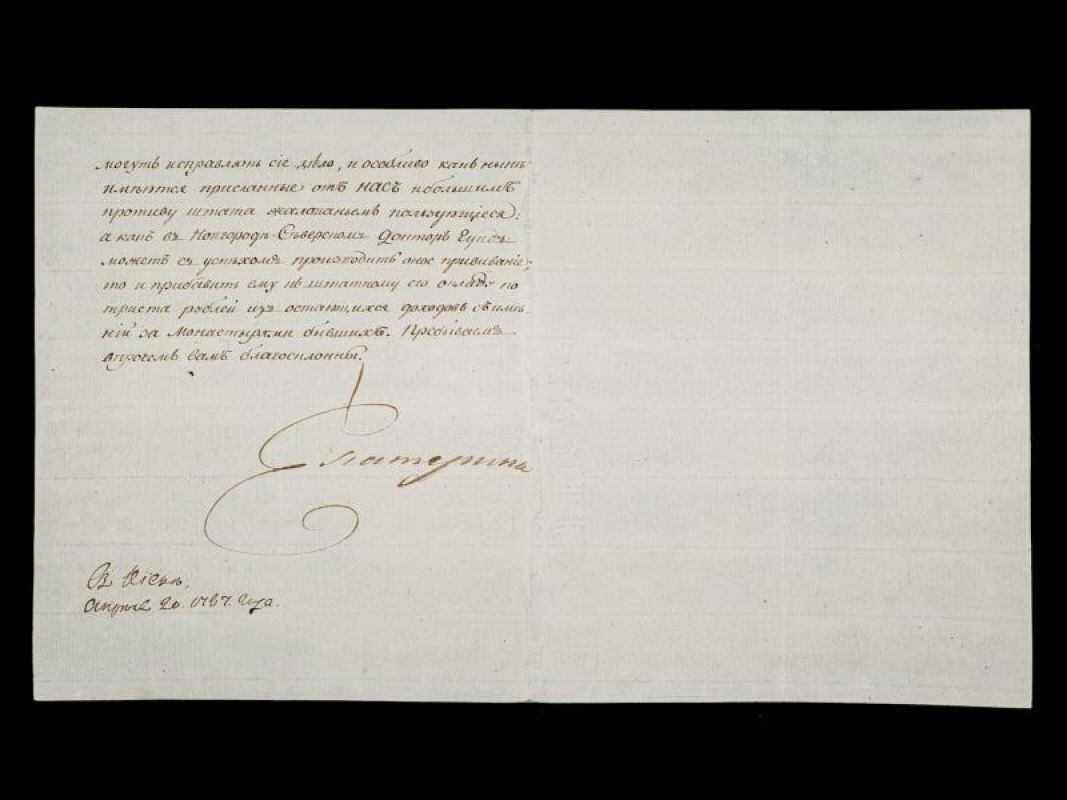 могутъ исправлять сіе дѣло, и особливо какъ нынѣ
имѣются присланные отъ насъ и большимъ
противу штата жалованьемъ пользующіеся:
а какъ въ Новгородъ-Сѣверскомъ Докторъ Гундъ
можетъ съ успѣхомъ производить оное прививаніе,
то и прибавить ему къ штатному его окладу по
триста рублей изъ остающихся доходовъ съ имѣ
ній за Монастырями бывшихъ. Пребываемъ
впрочемъ вамъ благосклонны.
Екатерина
Въ Кіевѣ,
Апрѣля 20. 1787. года.